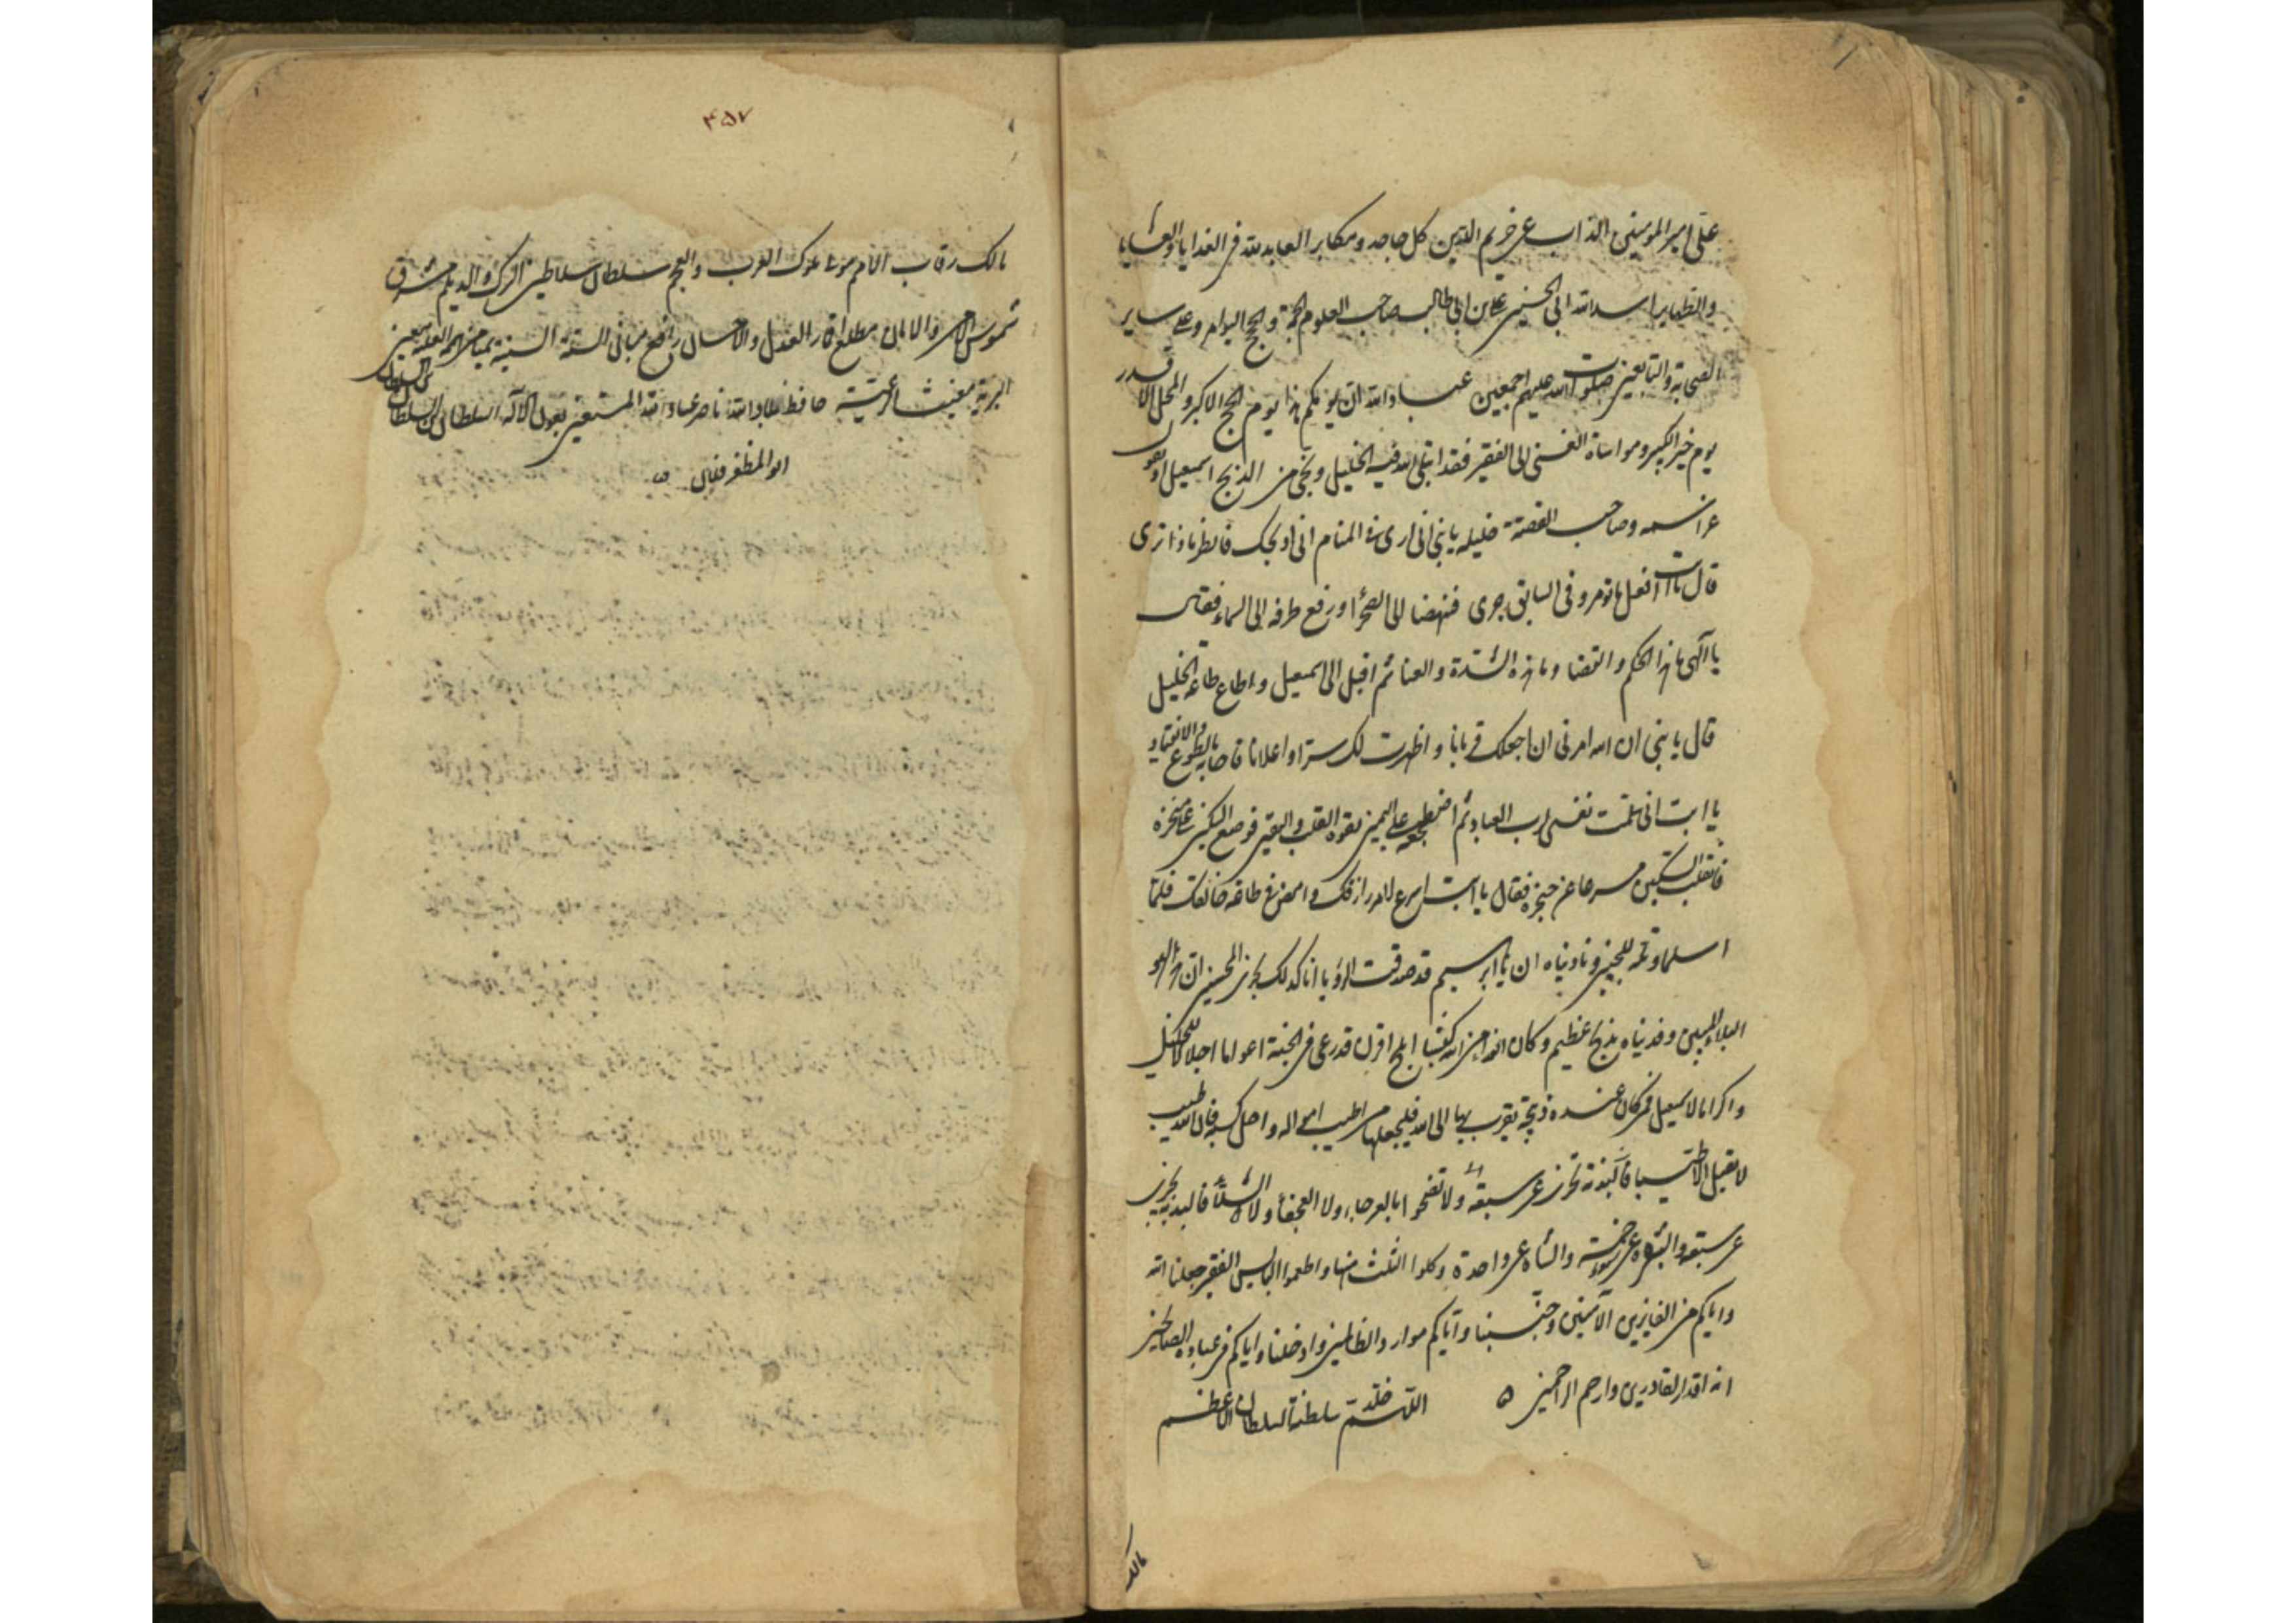 علی امیرالمومنین الذاب عن حریم الدین کل جاحد ومکابر العابد لله فی الغدایا والعشایا
والظهایر اسد الله ابی الحسنین علی بن ابی طالب صاحب العلوم الجمة والحجج البواهر وعلی سایر
الصحابة والتابعین صلوات الله علیهم اجمعین عباد الله ان یومکم هذا یوم الحج الاکبر والمحل الاقدر
یوم خیر الکبیر ومواساة الغنی الی الفقیر فقد ابتلی الله فیه الخلیل ونجی من الذبح اسمعیل اذ یقول
عز اسمه وصاحب القصة خلیله یا بنی انی اری فی المنام انی اذبحک فانظر ماذا تری
قال یا ابت افعل ما تومر وفی السابق جری فنهضا الی الصحرا ورفع طرفه الی السماء فقال
یا الهی ما هذا الحکم والقضا وما هذه الشدة والعنا ثم اقبل الی اسمعیل واطاع طاعة الخلیل
قال یا بنی ان الله امرنی ان اجعلک قربانا واظهرت لک سرا واعلانا فاجابه بالطوع والانقیاد
یا ابت انی سلمت نفسی لرب العباد ثم اضطجعه علی الیمین بقوة القلب والیقین فوضع السکین علی منحره
فانقلب السکین مسرعا عن حنجره فقال یا ابت اسرع لامر رازقک وامض فی طاعة خالقک فلما
اسلما وتله للجبین ونادیناه ان یا ابرهیم قد صدقت الرؤیا انا کذلک نجزی المحسنین ان هذا لهو
البلاء المبین وفدیناه بذبح عظیم وکان الفداء من الله کبشا املح اقرن قد رعی فی الجنة اعواما اجلالا للخلیل
واکراما لاسمعیل فمن کان عنده ذبیحة یقرب بها الی الله فلیجعلها من اطیب امواله واحل کسبه فان الله طیب
لا یقبل الا طیبا فالبدنة تجزی عن سبعة ولا تضحوا بالعرجاء ولا العجفا ولا الشلا فالبدنة تجزی
عن سبعة والبقرة عن خمسة والشاة عن واحدة وکلوا الثلث منها واطعموا البایس الفقیر جعلنا الله
وایاکم من الفایزین الآمنین وجنبنا وایاکم موارد الظالمین وادخلنا وایاکم فی عباده الصالحین
انه اقدر القادرین وارحم الراحمین اللهم خلد سلطنة السلطان الاعظم
مالک
۴۵۷
مالک رقاب الامم مولا ملوک العرب والعجم سلطان سلاطین الترک والدیلم مشرق
شموس الامن والامان مطلع اقمار العدل والاحسان رافع مبانی السنة السنیة بمیامن الهمة العلیة معین
البریة مغیث الرعیة حافظ بلاد الله ناصر عباد الله المستعین بعون الاله السلطان بن السلطان
بن السلطان
ابو المظفر فلان